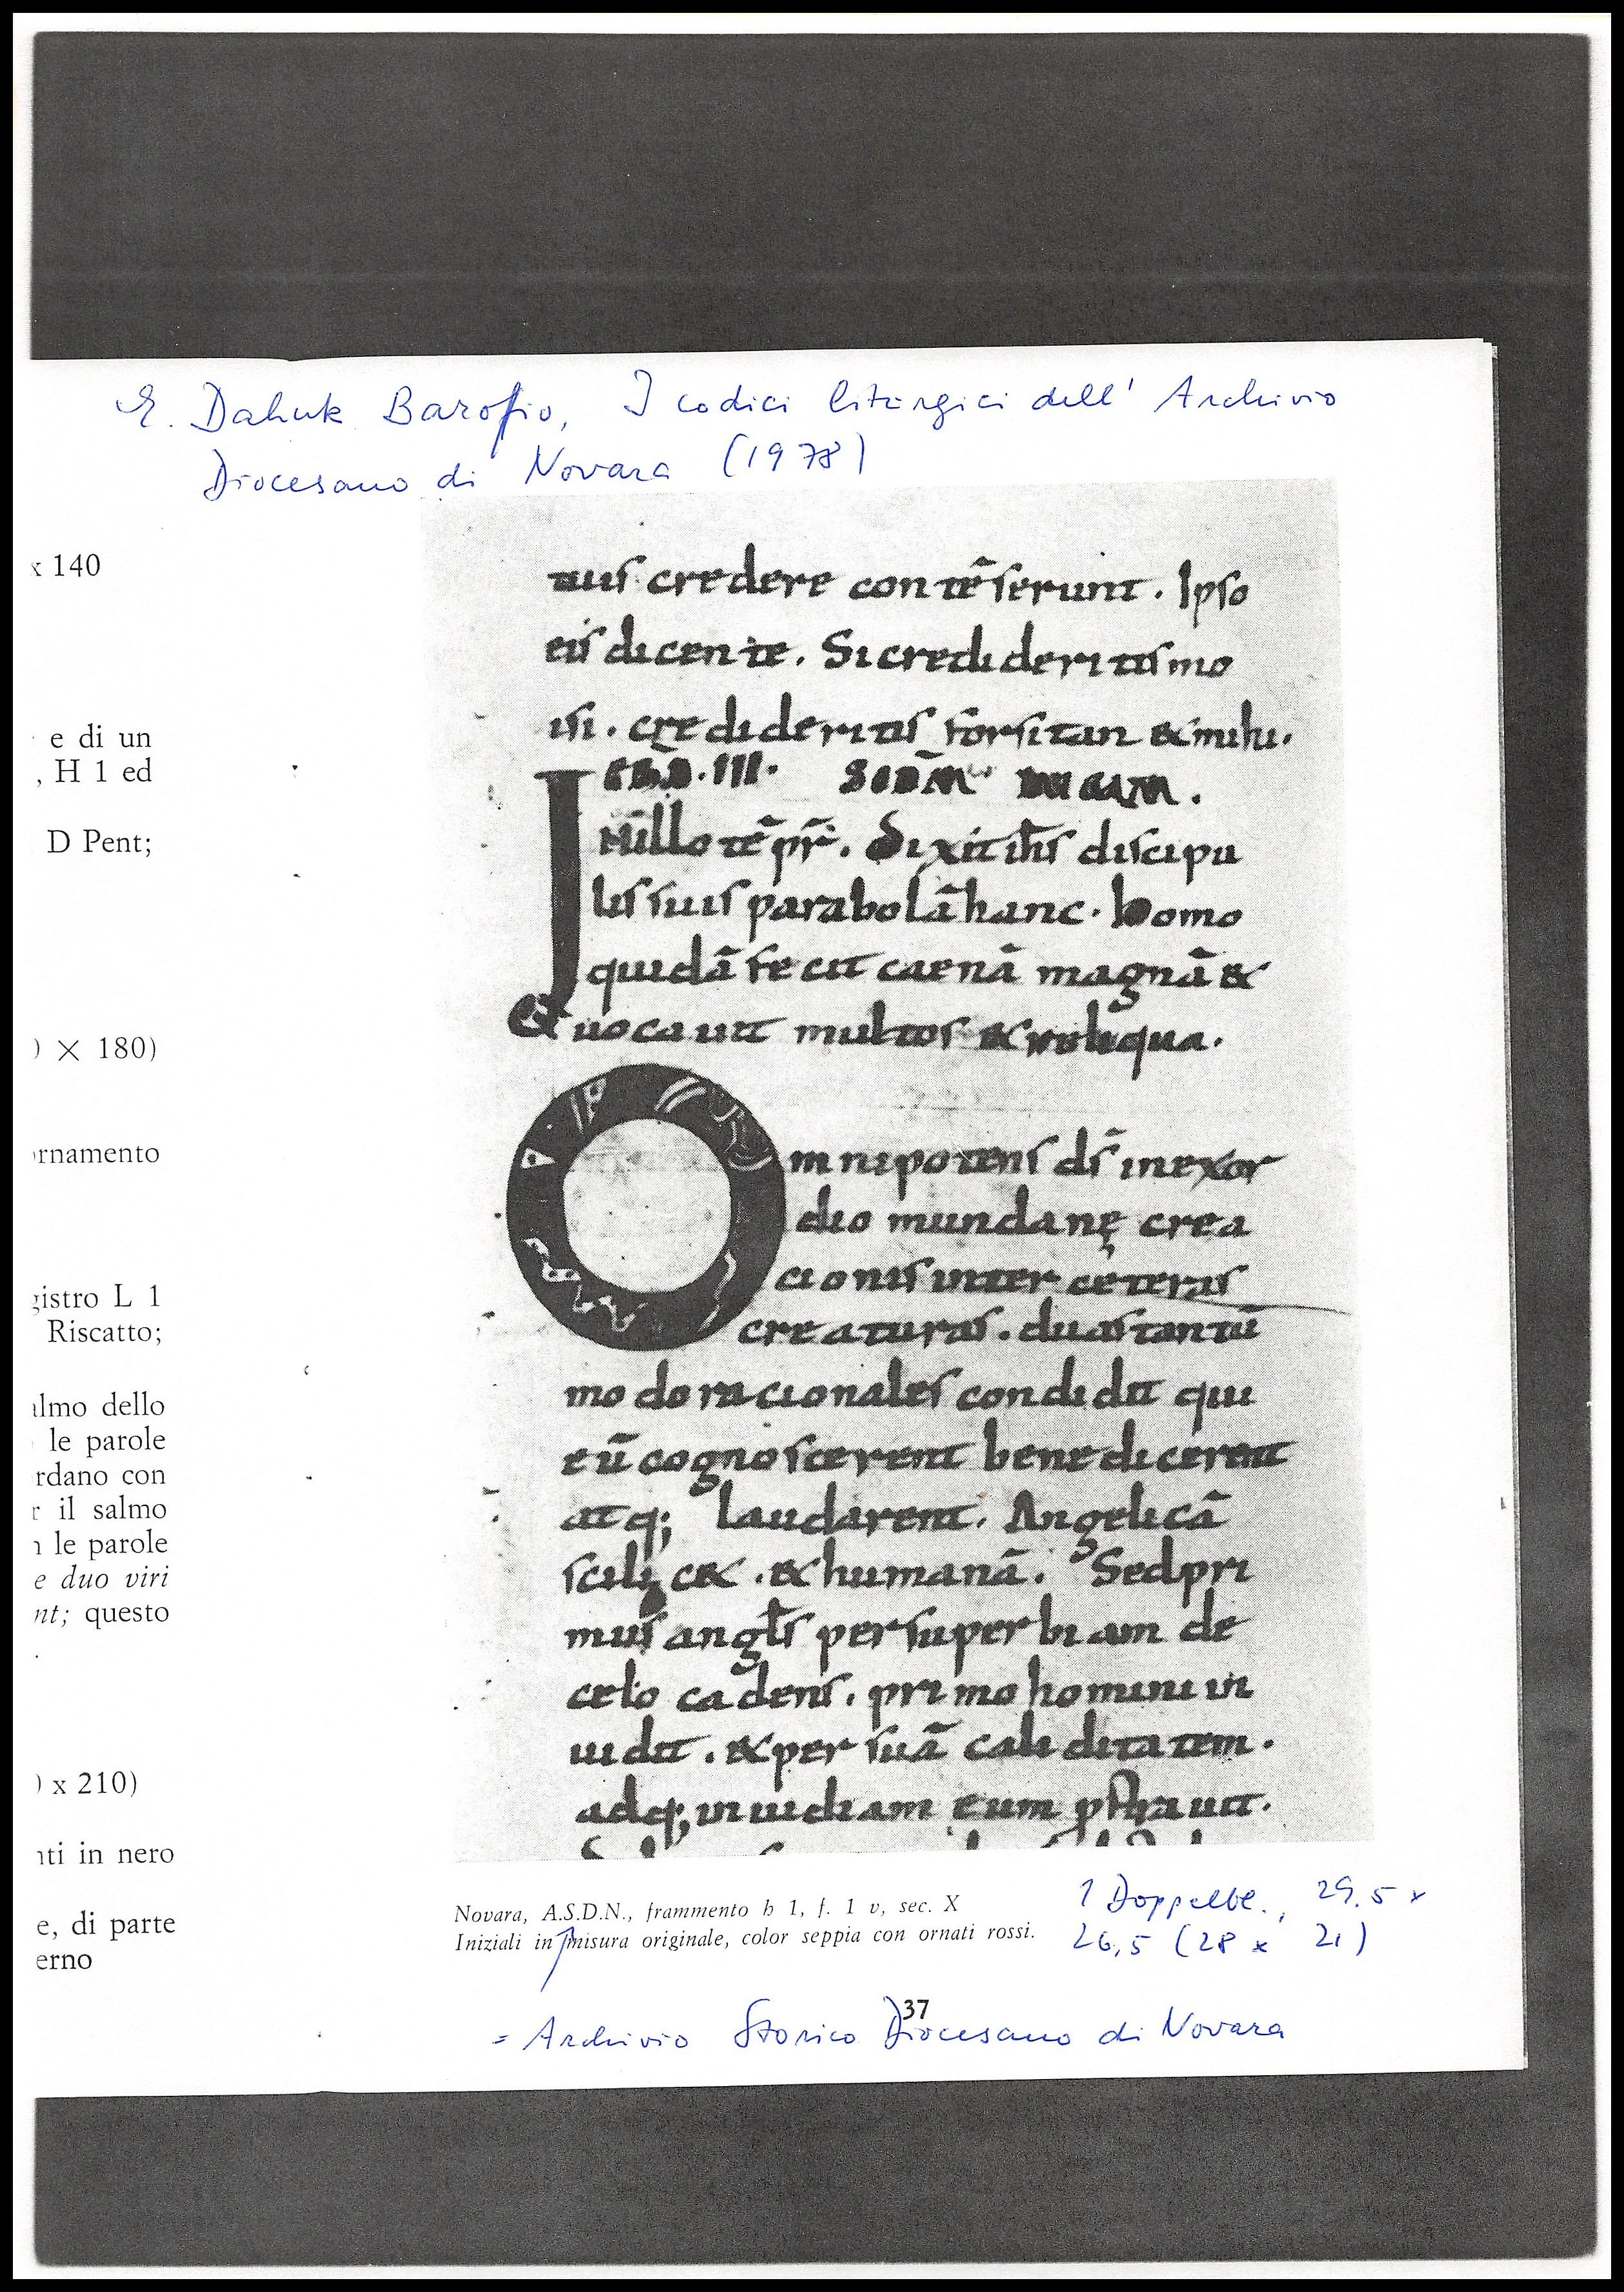 E. Dahnk Baroffio, I codici liturgici dell' Archivio
Diocesano di Novara (1978)
x 140
e di un
, H 1 ed
D Pent;
) × 180)
ornamento
gistro L 1
Riscatto;
almo dello
le parole
rdano con
r il salmo
n le parole
e duo viri
nt; questo
) x 210)
nti in nero
e, di parte
erno
tuis credere contēserunt. Ipso
eis dicente. Si credideritis mo
isi. credideritis forsitan & mihi.
EBD. III. SCDM LUCAM.
IN illo tēpr̄. Dixit ih̄s discipu
lis suis parabolā hanc. homo
quidā fecit caenā magnā &
& uocauit multos & reliqua.
Omnipotens ds̄ in exor
dio mundanę crea
cionis inter ceteras
creaturas. duas tantū
modo racionales condidit qui
eū cognoscerent benedicerent
atq; laudarent. Angelicā
scilic&. & humanā. Sed pri
mus angl̄s per superbiam de
celo cadens. primo homini in
uidit. & per suā caliditatem.
adq; inuidiam eum pstrauit.
Novara, A.S.D.N., frammento h 1, f. 1 v, sec. X
Iniziali in misura originale, color seppia con ornati rossi.
1 Doppelbl., 29.5 x
26,5 (28 x 21)
37
= Archivio Storico Diocesano di Novara